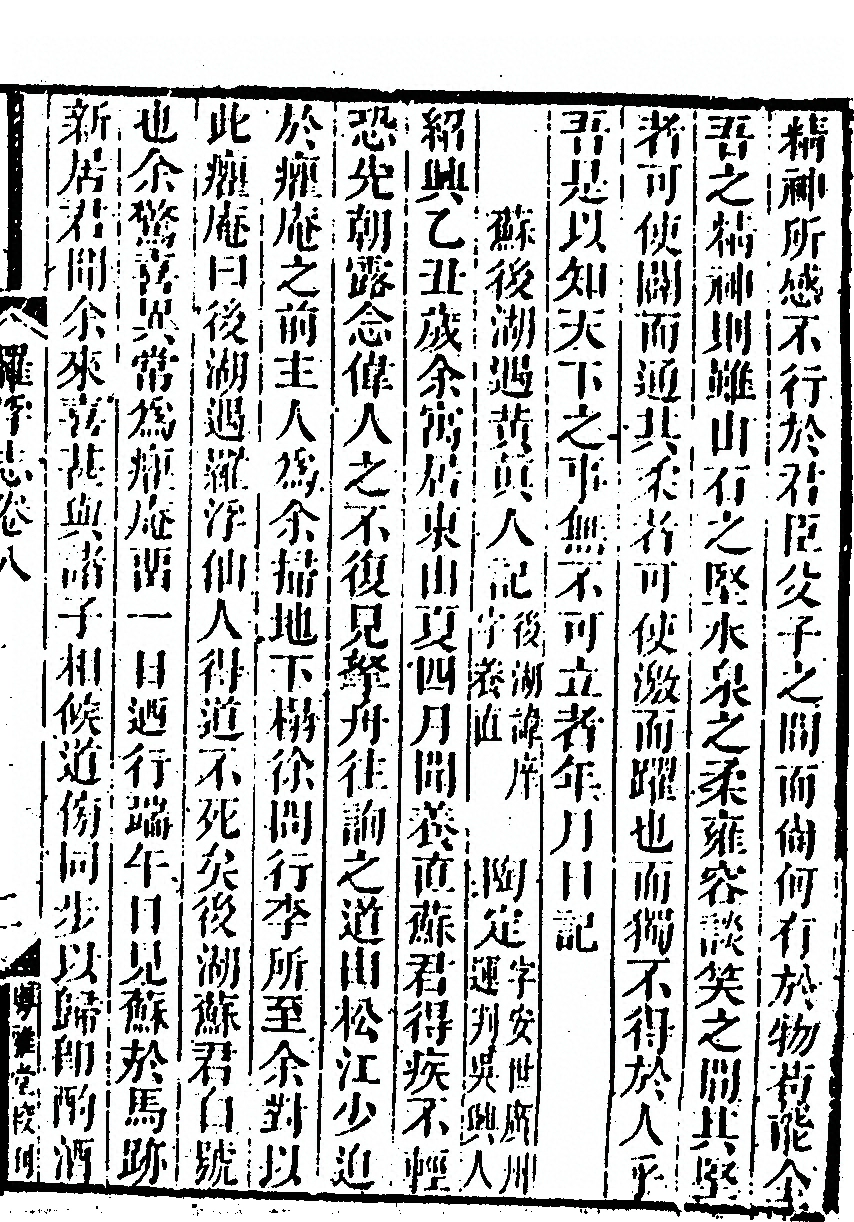 精神所感不行於君臣父子之間而尚何有於物苟能全
吾之精神則雖山石之堅水泉之柔雍容談笑之間其堅
者可使開而通其柔者可使激而躍也而獨不得於人乎
吾是以知天下之事無不可立者年月日記
蘇後湖遇黃眞人記 後湖諱庠字養直 陶定 字安世廣州運判吳興人
紹興乙丑歲余寓居東山夏四月聞養直蘇君得疾不輕
恐先朝露念偉人之不復見拏舟往詢之道由松江少迫
於癯庵之前主人爲余掃地下榻徐問行李所至余對以
此癯庵曰後湖遇羅浮仙人得道不死矣後湖蘇君自號
也余驚喜異常爲癯庵留一日迺行端午日見蘇於馬跡
新居君聞余來喜甚與諸子相候道傍同步以歸卽酌酒
羅浮志卷八
粤雅堂校刊